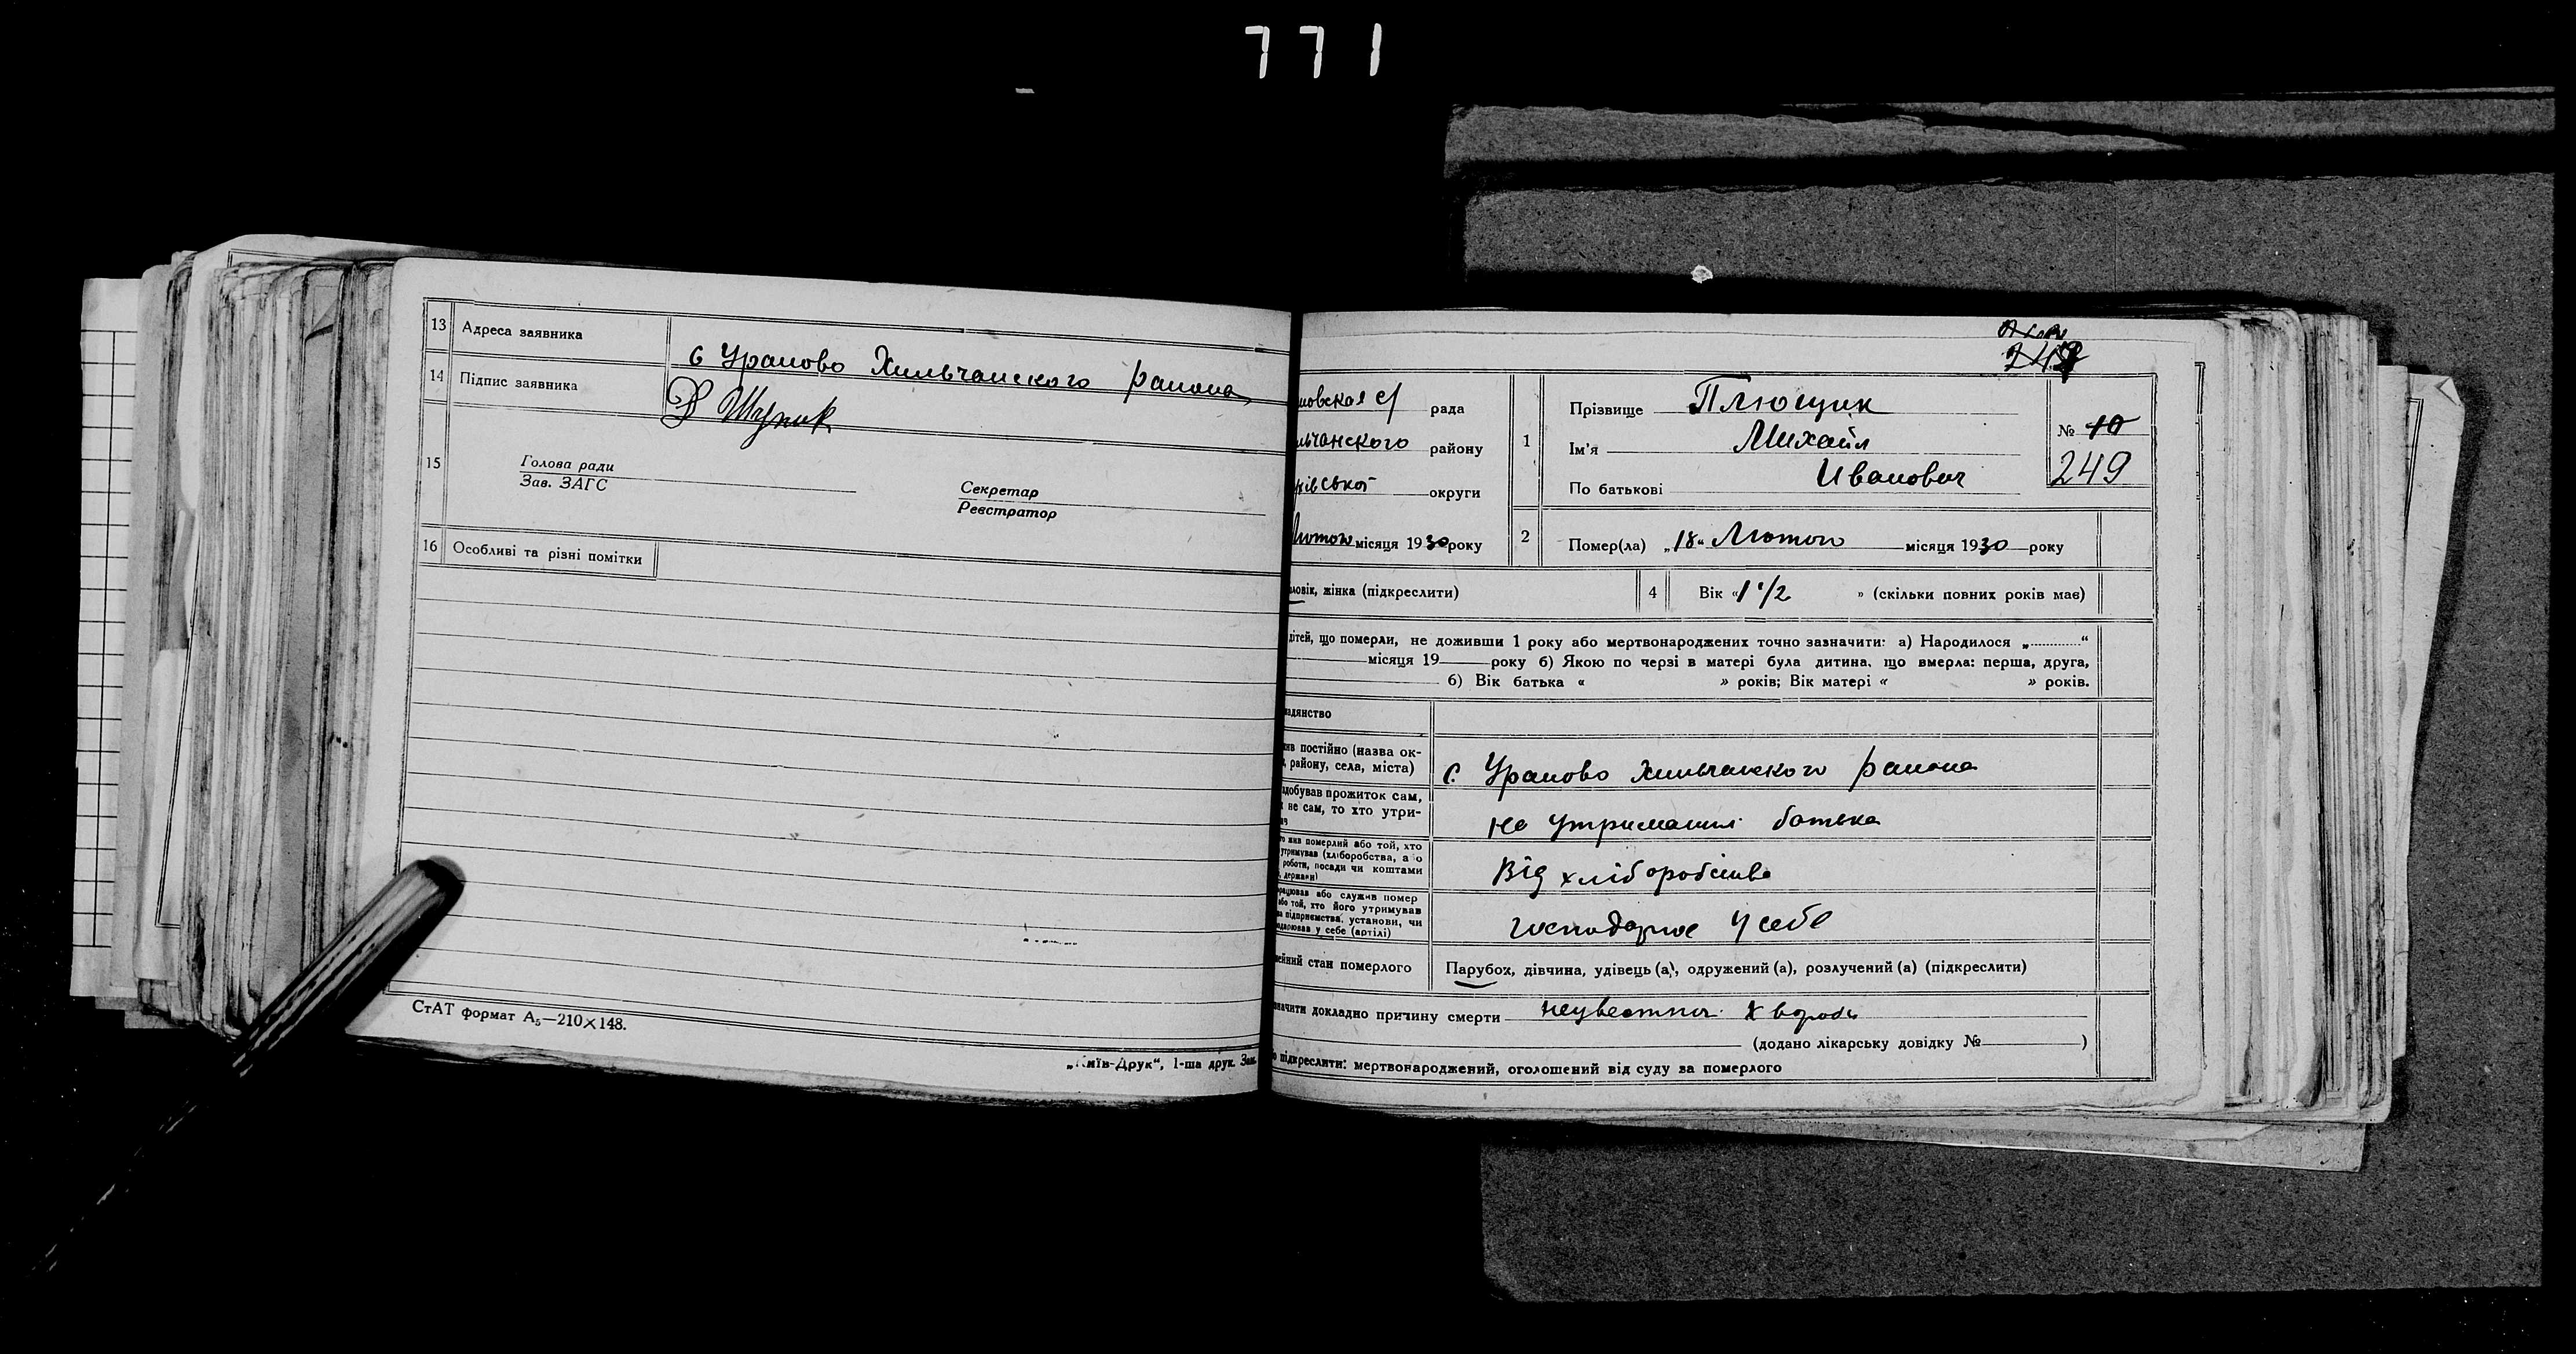 771
13 Адреса заявника
с Ураново Хильчанского района
14 Підпис заявника
Шупик
15 Голова ради
Зав. ЗАГС
Секретар
Реєстратор
16 Особливі та різні помітки
СтАТ формат А₅—210×148.
„Київ-Друк“, 1-ша друк. Зам.
249
новская с/ рада
льчанского району
округи
Лютого місяця 1930 року
1 Прізвище Плющик
Ім’я Михайл
По батькові Иванович
№ 10
249
2 Помер(ла) „18“ Лютого місяця 1930 року
ловік, жінка (підкреслити)
4 Вік «1 1/2 » (скільки повних років має)
дітей, що померли, не доживши 1 року або мертвонароджених точно зазначити: а) Народилося „..........“
місяця 19 року б) Якою по черзі в матері була дитина, що вмерла: перша, друга,
б) Вік батька « » років; Вік матері « » років.
адянство
ив постійно (назва ок-
, району, села, міста)
с. Ураново Хильчанского района
здобував прожиток сам,
не сам, то хто утри-
на утриманні батька
жив померлий або той, хто
утримував (хліборобства, а о
роботи, посади чи коштами
держави)
Від хліборобства
працював або служив помер
або той, хто його утримував
підприємства, установи, чи
у себе (артілі)
господарює у себе
ейний стан померлого
Парубок, дівчина, удівець (а), одружений (а), розлучений (а) (підкреслити)
значити докладно причину смерти неувестної хвороби
(додано лікарську довідку № )
підкреслити: мертвонароджений, оголошений від суду за померлого